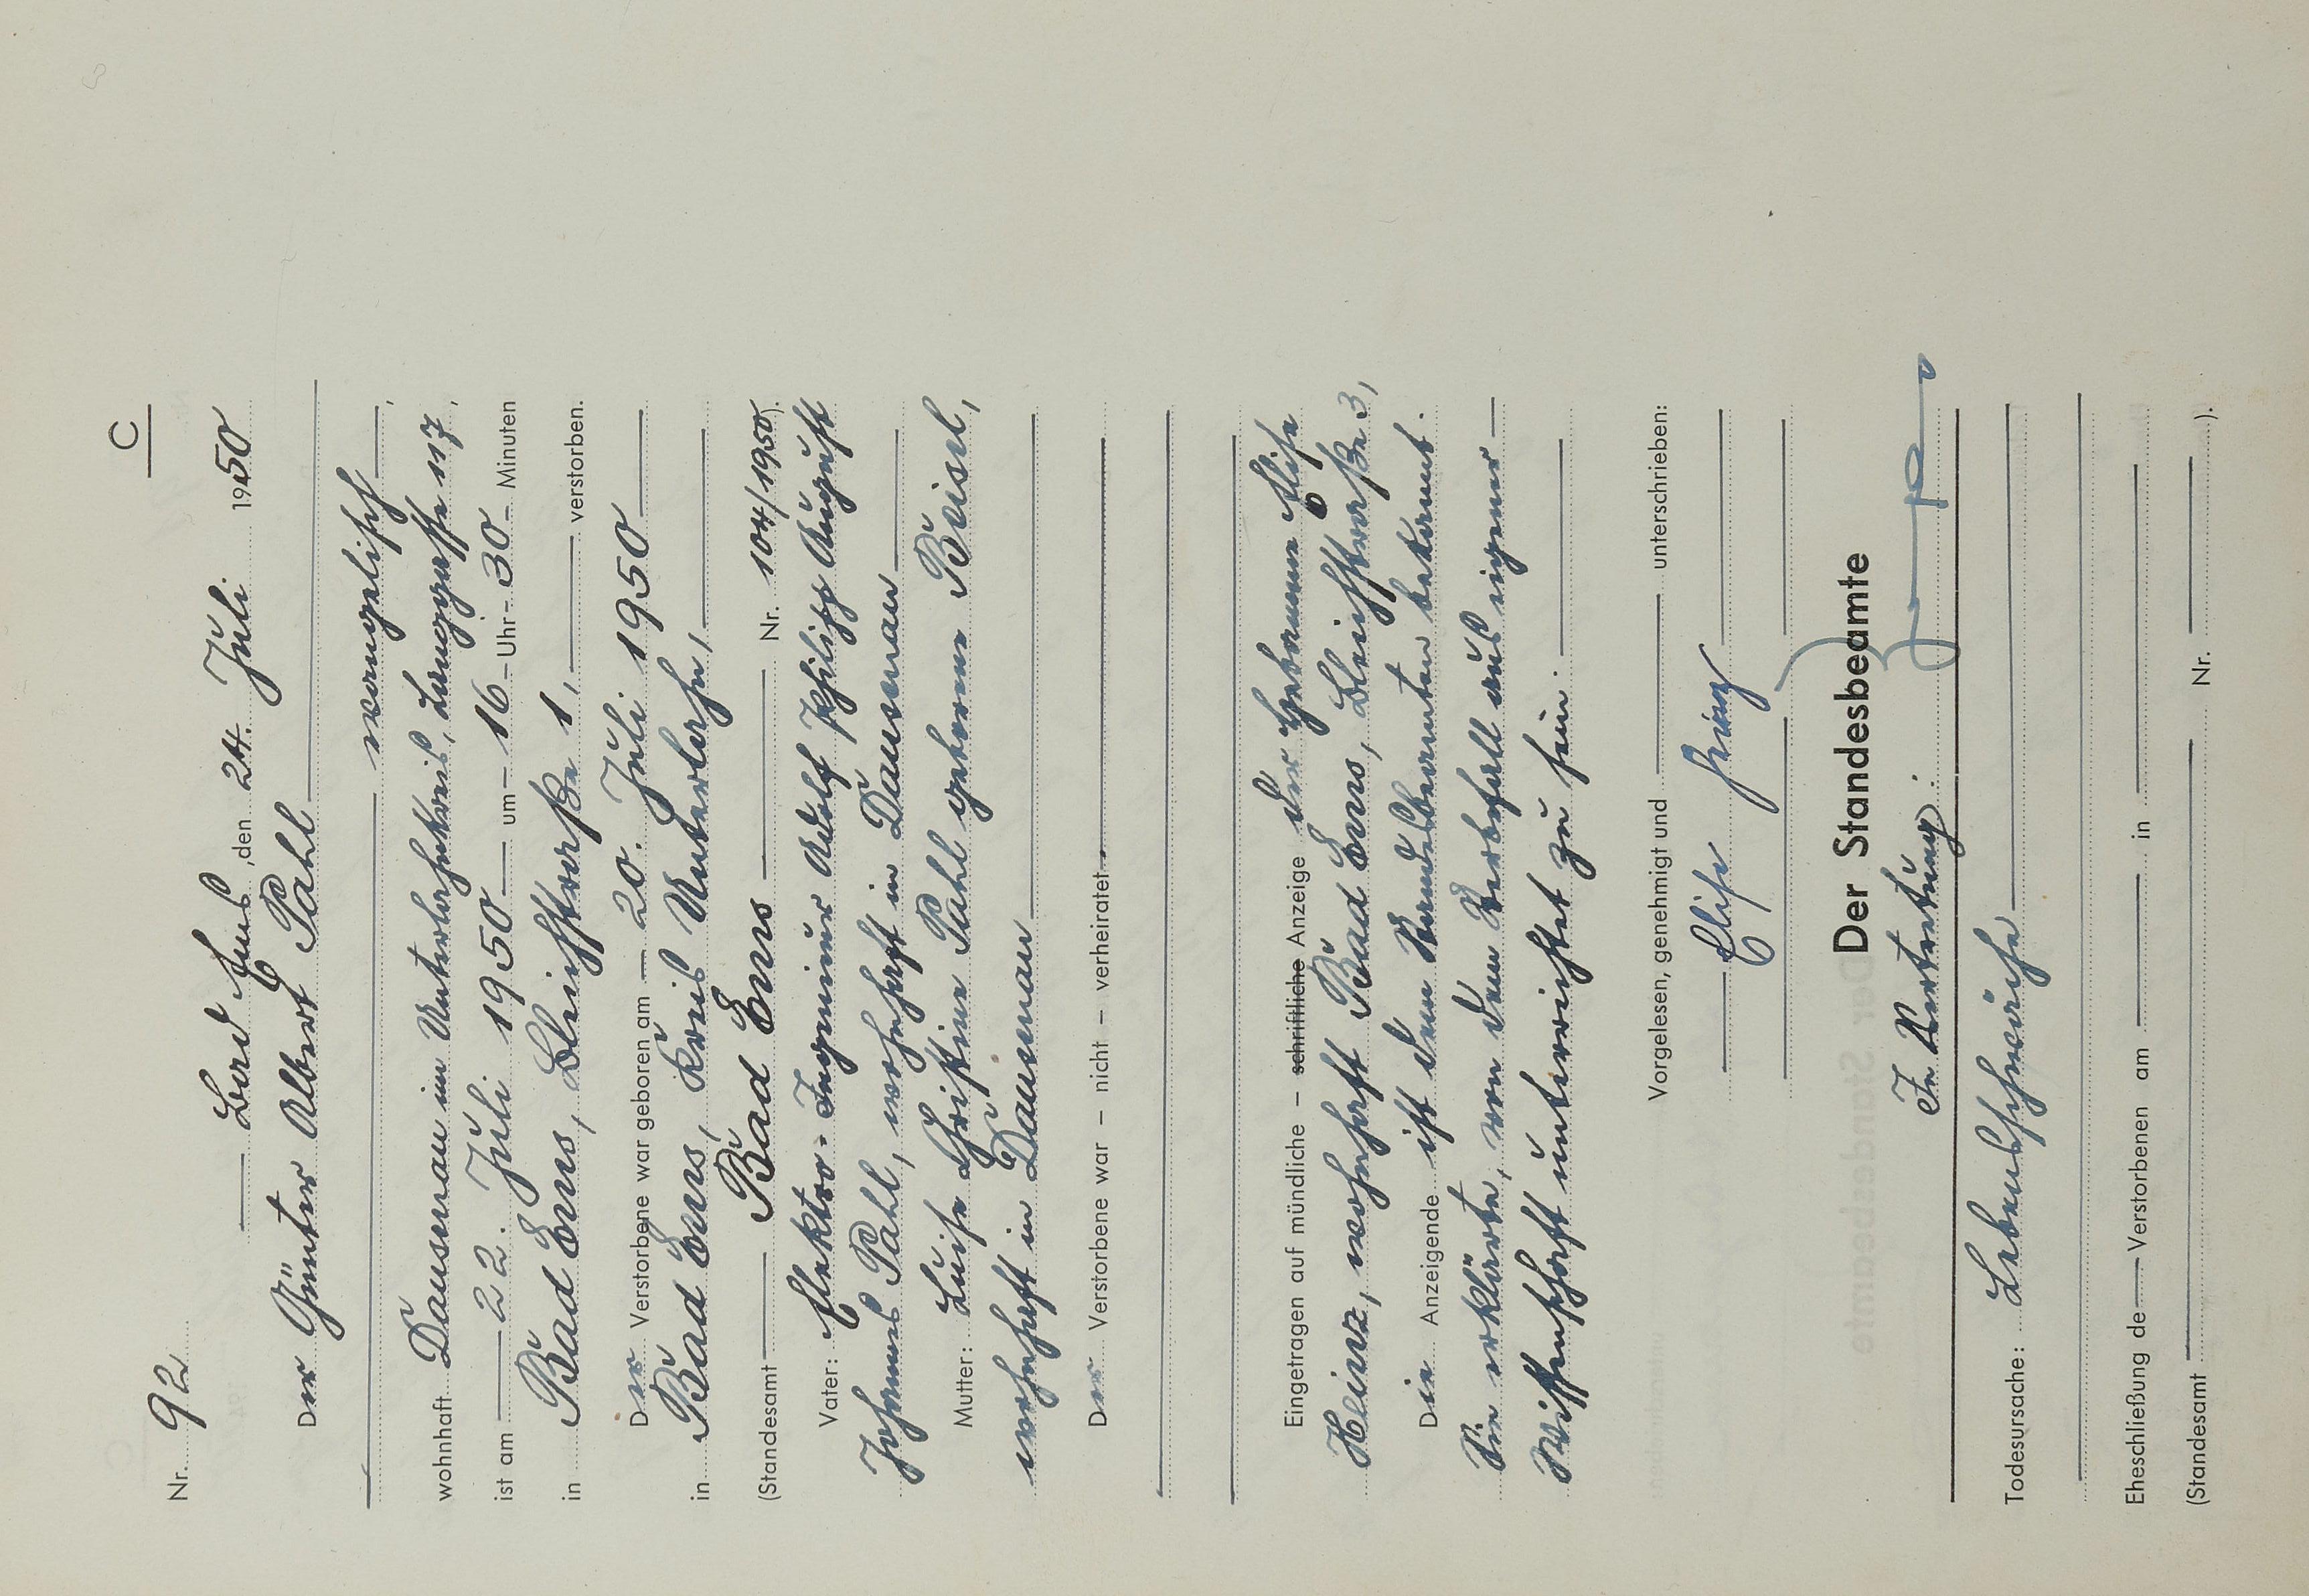 C
Nr. 92
Bad Ems, den 24. Juli 1950
Der Günter Albert Pahl
evangelisch,
wohnhaft Dausenau im Unterlahnkreis, Langgasse 117,
ist am 22. Juli 1950 um 16 Uhr 30 Minuten
in Bad Ems, Bleichstraße 1, verstorben.
Der Verstorbene war geboren am 20. Juli 1950
in Bad Ems, Kreis Unterlahn,
(Standesamt Bad Ems Nr. 104/1950).
Vater: Elektro-Ingenieur Adolf Philipp August
Johannes Pahl, wohnhaft in Dausenau
Mutter: Luise Christine Pahl geborene Beisel,
wohnhaft in Dausenau
Der Verstorbene war – nicht – verheiratet
Eingetragen auf mündliche – schriftliche Anzeige der Hebamme Elise
Heinz, wohnhaft Bad Ems, Bleichstraße 3,
Die Anzeigende ist dem Standesbeamten bekannt.
Sie erklärte, von dem Sterbefall aus eigener
Wissenschaft unterrichtet zu sein.
Vorgelesen, genehmigt und unterschrieben:
Elise Heinz
Der Standesbeamte
In Vertretung:
Todesursache: Lebensschwäche
Eheschließung de Verstorbenen am in
(Standesamt Nr. ).